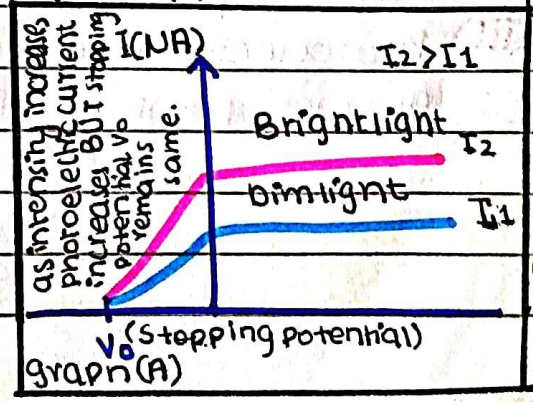 as intensity increases
photoelectric current
increases BUT stopping
potential Vo
remains
same.
I(NA)
I2 > I1
Brightlight
I2
Dimlight
I1
Vo (stopping potential)
graph (A)